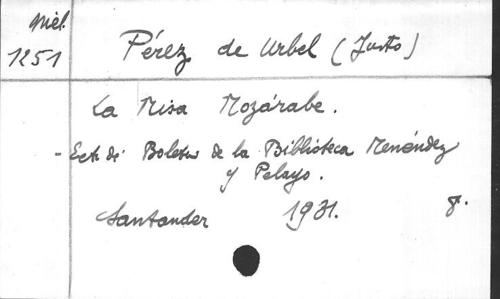 Miél.
1251
Pérez de Urbel (Justo)
La Misa Mozárabe.
- Ext. di Boletin de la Biblioteca Menéndez
y Pelayo.
Santander 1931. 8.